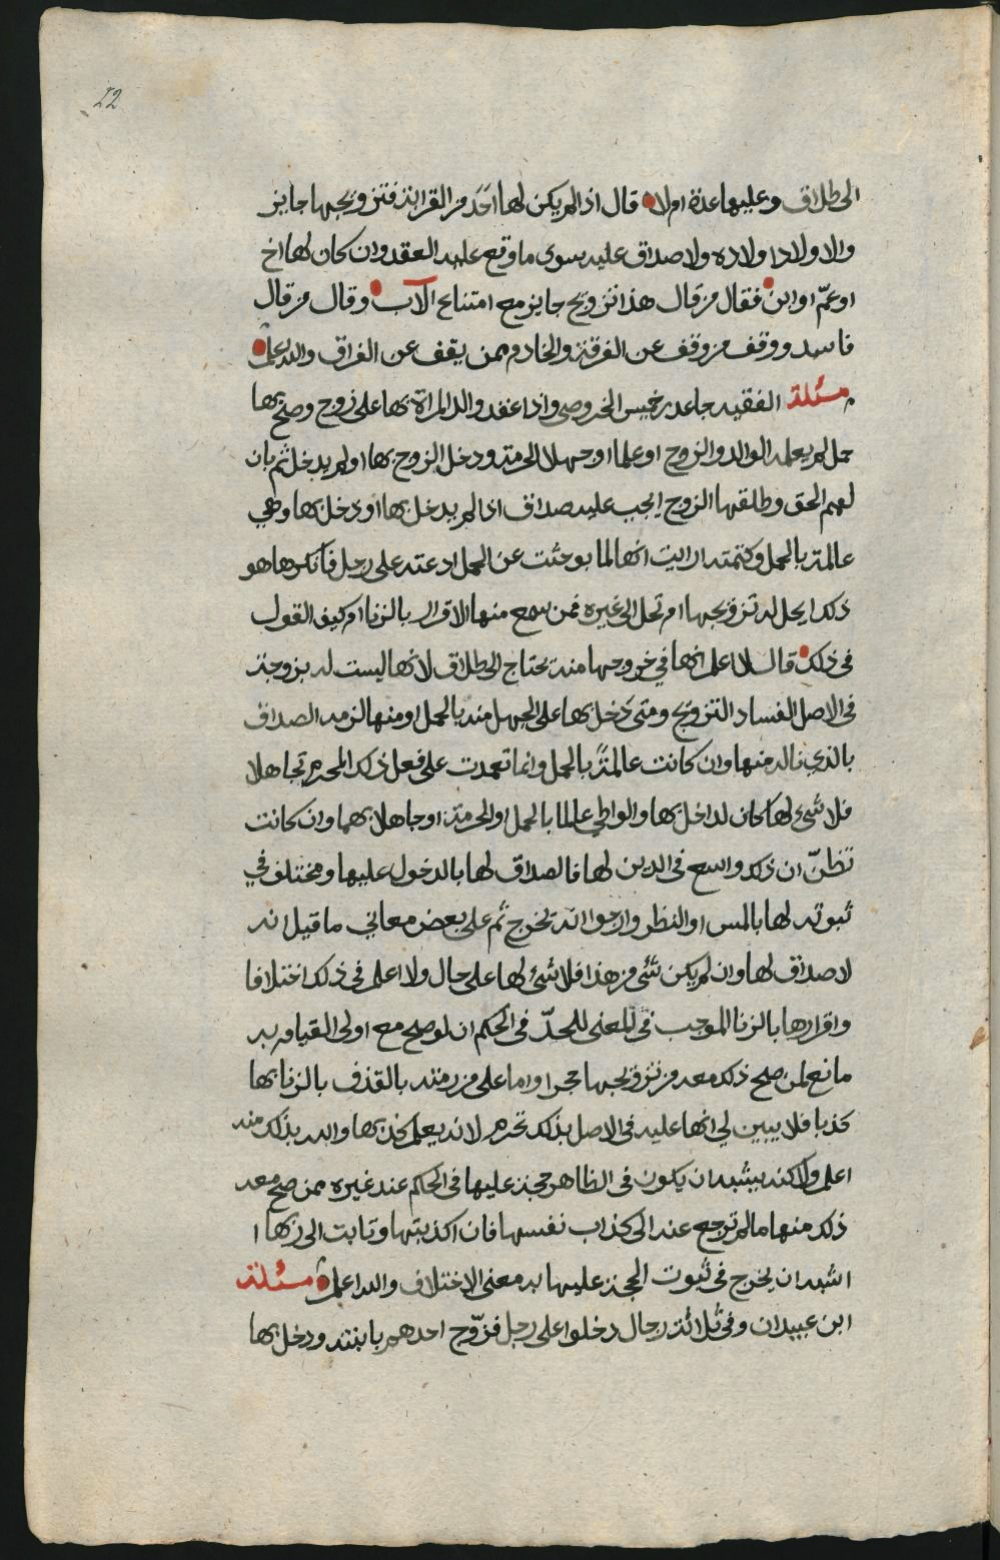 22
الى طلاق وعليها عدة ام لا قال اذا لم يكن لها احد من القرابة فتزويجها جايز
والاولاد اولاده ولا صداق عليه سوى ما وقع عليه العقد وان كان لها اخ
او عمّ او ابن فقال من قال هذا تزويج جايز مع امتناع الآب وقال من قال
فاسد ووقف من وقف عن الفرقة والخادم ممن يقف عن الفراق والله اعلم
مسئلة الفقيه جاعد بن خميس الخروصي واذا عقد والد المراة بها على زوج وصح بها
حمل لم يعلمه الوالد والزوج او علما او جهلا الحرمة ودخل الزوج بها او لم يدخل ثم بان
لهم الحق وطلقها الزوج ايجب عليه صداق اذا لم يدخل بها او دخل بها وهي
عالمة بالحمل وكتمته ارايت انها لما بوحثت عن الحمل ادعته على رجل فانكرها هو
ذلك ايحل له تزويجها ام تحل الى غيره ممن سمع منها الاقرار بالزنا ام كيف القول
في ذلك قال لا اعلم انها في خروجها منه تحتاج الى طلاق لانها ليست له بزوجة
في الاصل لفساد التزويج ومتى دخل بها على الجهل منه بالحمل او منها لزمه الصداق
بالذي ناله منها وان كانت عالمةً بالحمل وانما تعمدت على فعل ذلك المحرم تجاهلا
فلا شيء لها كان لداخل بها والواطي عالما بالحمل او الحرمة او جاهلا بهما وان كانت
تظنّ ان ذلك واسع في الدين لها فالصداق لها بالدخول عليها ومختلف في
ثبوته لها بالمس او النظر وارجوا انه يخرج ثم على بعض معاني ما قيل انه
لا صداق لها وان لم يكن شئ من هذا فلا شئ لها على حال ولا اعلم في ذلك اختلافا
واقرارها بالزنا الموجب في المعنى للحدّ في الحكم ان لو صح مع اولى القيام به
مانع لمن صح ذلك معه من تزويجها حجرا واما على من رمته بالقذف بالزنا بها
كذبا فلا يبين لي انها عليه في الاصل بذلك تحرم لانه يعلم كذبها والله بذلك منه
اعلم ولاكنه يشبه ان يكون في الظاهر حجة عليها في الحكم عند غيره ممن صح معه
ذلك منها ما لم ترجع عنه الى كذاب نفسها فان اكذبتها وتابت الى ربها ا
اشبه ان يخرج في ثبوت الحجة عليها به معنى الاختلاف والله اعلم مسئلة
ابن عبيدان وفي ثلاثة رجال دخلوا على رجل فزوّج احدهم بابنته ودخل بها